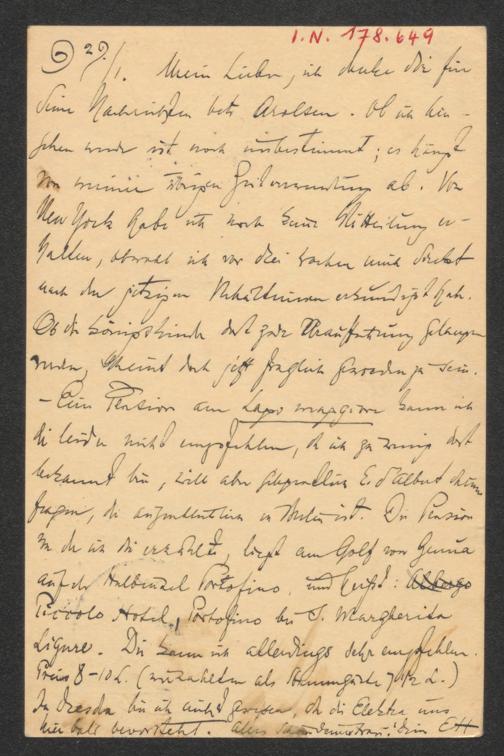 I.N. 178.649
29./1. Mein Lieber, ich danke dir für
deine Nachrichten betr. Arolsen. Ob ich hin-
gehen werde ist noch unbestimmt; es hängt
von meiner übrigen Zeitverwendung ab. Von
New York habe ich noch keine Mitteilung er-
halten, obwohl ich vor drei Wochen mich direkt
nach den jetzigen Verhältnissen erkundigt habe.
Ob die Königskinder dort zur Uraufführung gelangen
werden, scheint doch jetzt fraglich geworden zu sein.
– Eine Pension am Lago maggiore kann ich
dir leider nicht empfehlen, da ich zu wenig dort
bekannt bin, will aber gelegentlich E. d'Albert darum
fragen, der augenblicklich in Berlin ist. Die Pension
von der ich dir erzählte, liegt am Golf von Genua
auf der Halbinsel Portofino und heißt: Albergo
Piccolo Hotel, Portofino bei S. Margherita
Ligure. Die kann ich allerdings sehr empfehlen.
Preis 8-10 L. (wir zahlten als Stammgäste 7 1/2 L.)
In Dresden bin ich nicht gewesen, da die Elektra uns
hier bald bevorsteht. Dein EH